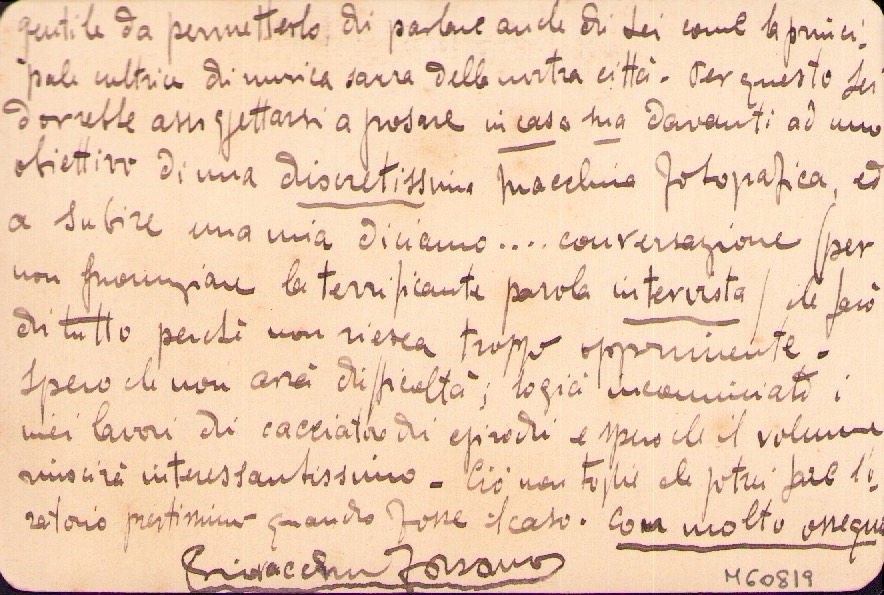 gentile da permetterlo, di parlare anche di Lei come la princi-
pale cultrice di musica sacra della nostra città - Per questo Lei
dovrebbe assoggettarsi a posare in casa sua davanti ad uno
obiettivo di una discretissima macchina fotografica, ed
a subire una mia diciamo.... conversazione (per
non pronunziare la terrificante parola intervista) che farò
di tutto perché non riesca troppo opprimente -
Spero che non avrà difficoltà; io già incominciato i
miei lavori di cacciatore di episodi e spero che il volume
riuscirà interessantissimo - Ciò non toglie che potrei fare l'o-
ratorio prestissimo quando fosse il caso. Con molto ossequio
Giovacchino Forzano
M60819